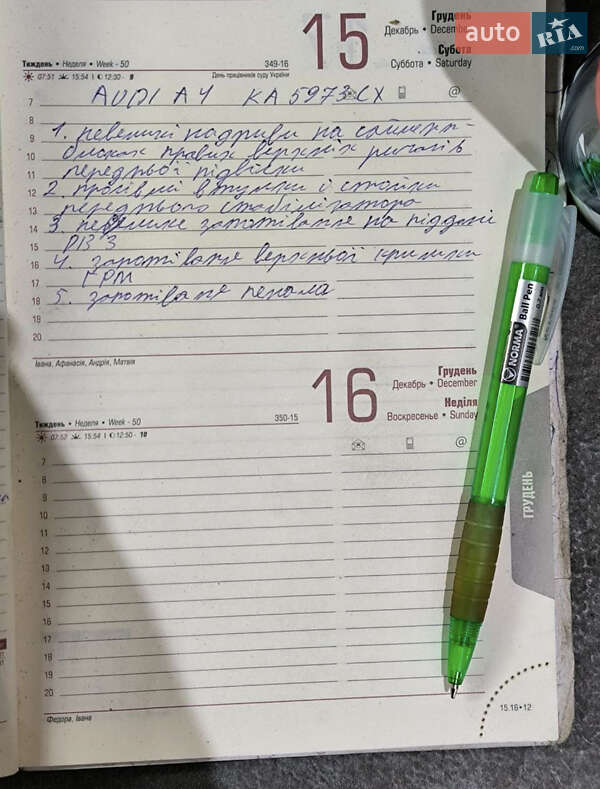 auto RIA .com
15
Грудень
Декабрь • December
Субота
Суббота • Saturday
Тиждень • Неделя • Week - 50
349-16
07:51 15:54 12:30 - 9
День працівників суду України
7 AUDI A4 KA5973CX @
8
9 1. невеликі надриви на сайлент-
10 блоках правих верхніх ричагів
11 передньої підвіски
12 2 просівші втулки і стойки
13 переднього стабілізатора
14 3. невелике запотівання на піддоні
15 ДВЗ
16 4. запотівання верхньої кришки
17 ГРМ
18 5. запотівання пенала
19
20
Івана, Афанасія, Андрія, Матвія
16
Грудень
Декабрь • December
Неділя
Воскресенье • Sunday
Тиждень • Неделя • Week - 50
350-15
07:52 15:54 12:50 - 10
7 @
8
9
10
11
12
13
14
15
16
17
18
19
20
Федора, Івана
ГРУДЕНЬ
15.16•12
NORMA Ball Pen 0,7 mm